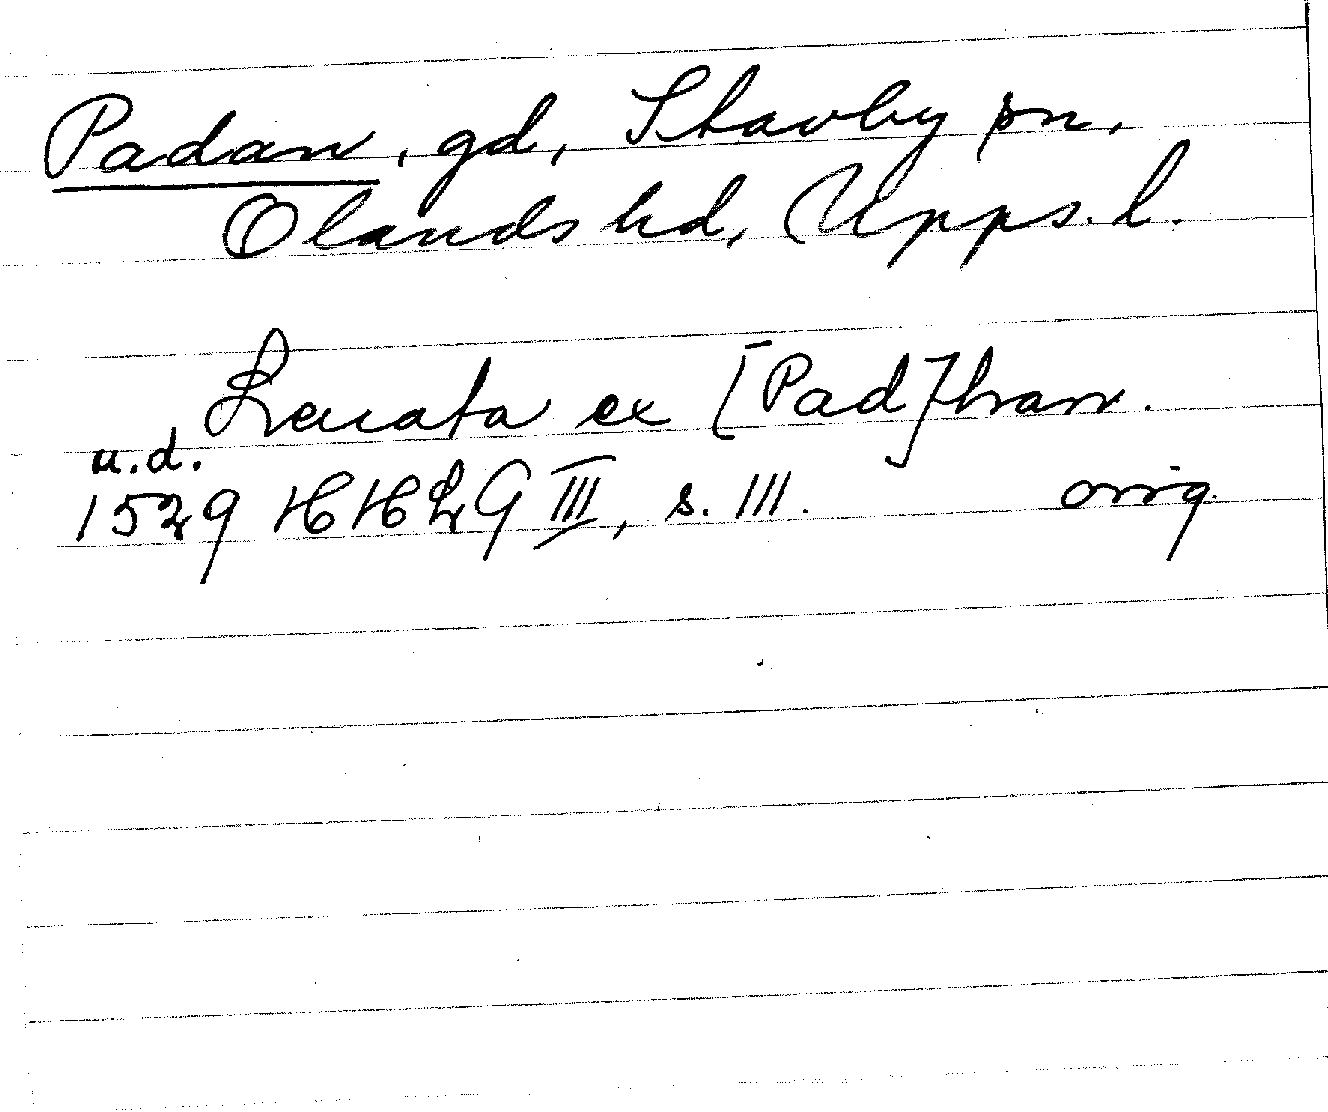 Padan, gd, Stavby sn,
Olands hd, Upps. l.
Leuata ex [Pad]han.
u.d.
1529 HHLG III, s. 111. orig